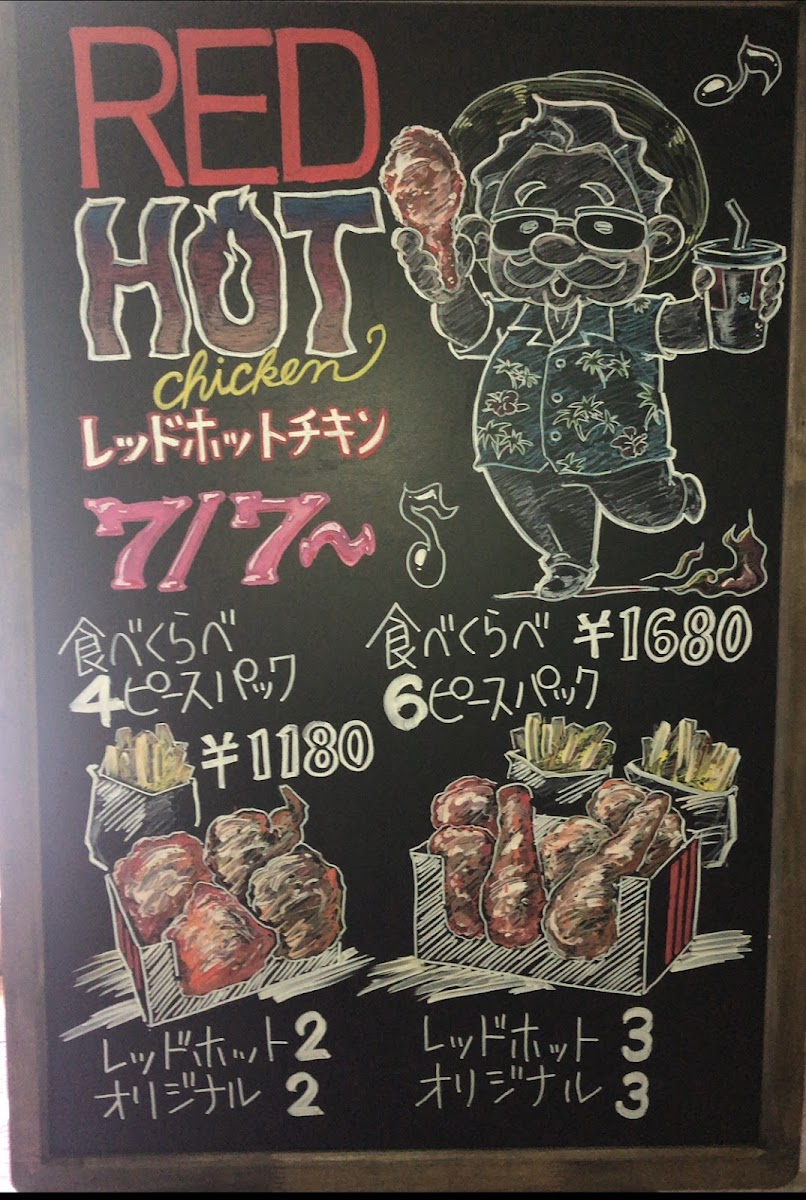 RED
HOT
chicken
レッドホットチキン
7/7~
食べくらべ
4ピースパック
¥1180
食べくらべ ¥1680
6ピースパック
レッドホット 2
オリジナル 2
レッドホット 3
オリジナル 3